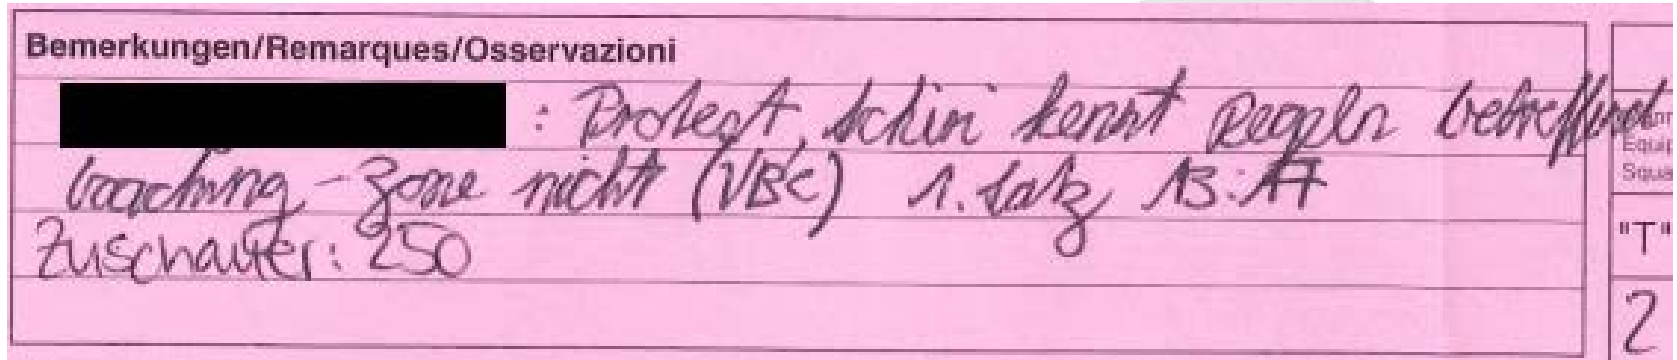 Bemerkungen/Remarques/Osservazioni
: Protest, Schiri kennt Regeln betreffend
Coaching-Zone nicht (VBC) 1. Satz 13:17
Zuschauer: 250
Equip
Squa
"T"
2